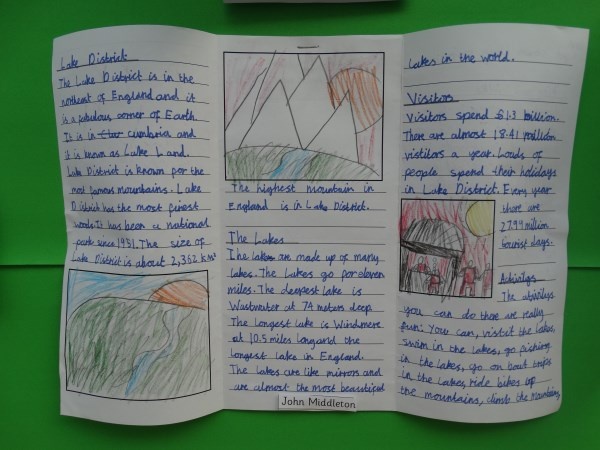 Lake District
The Lake District is in the
northeast of England and it
is a fabulous corner of Earth.
It is in cumbria and
it is known as Lake Land.
Lake District is known for the
most famous mountains. Lake
District has the most finest
woods. It has been a national
park since 1951. The size of
Lake District is about 2,362 km²
The highest mountain in
England is in Lake District.
The Lakes
The lakes are made up of many
lakes. The Lakes go for eleven
miles. The deepest lake is
Wastwater at 74 meters deep
The Longest lake is Windmere
at 10.5 miles long and the
longest lake in England.
The lakes are like mirrors and
are almost the most beautiful
John Middleton
lakes in the world.
Visitors
Visitors spend £1.3 billion.
There are almost 18.41 million
visitiors a year. Louds of
people spend their holidays
in Lake District. Every year
there are
27.99 million
tourist days.
Activitys
The ativitys
you can do there are really
fun: You can, visit the lakes,
swim in the lakes, go fishing
in the lakes, go on boat trips
in the lakes, ride bikes up
the mountains, climb the mountains,